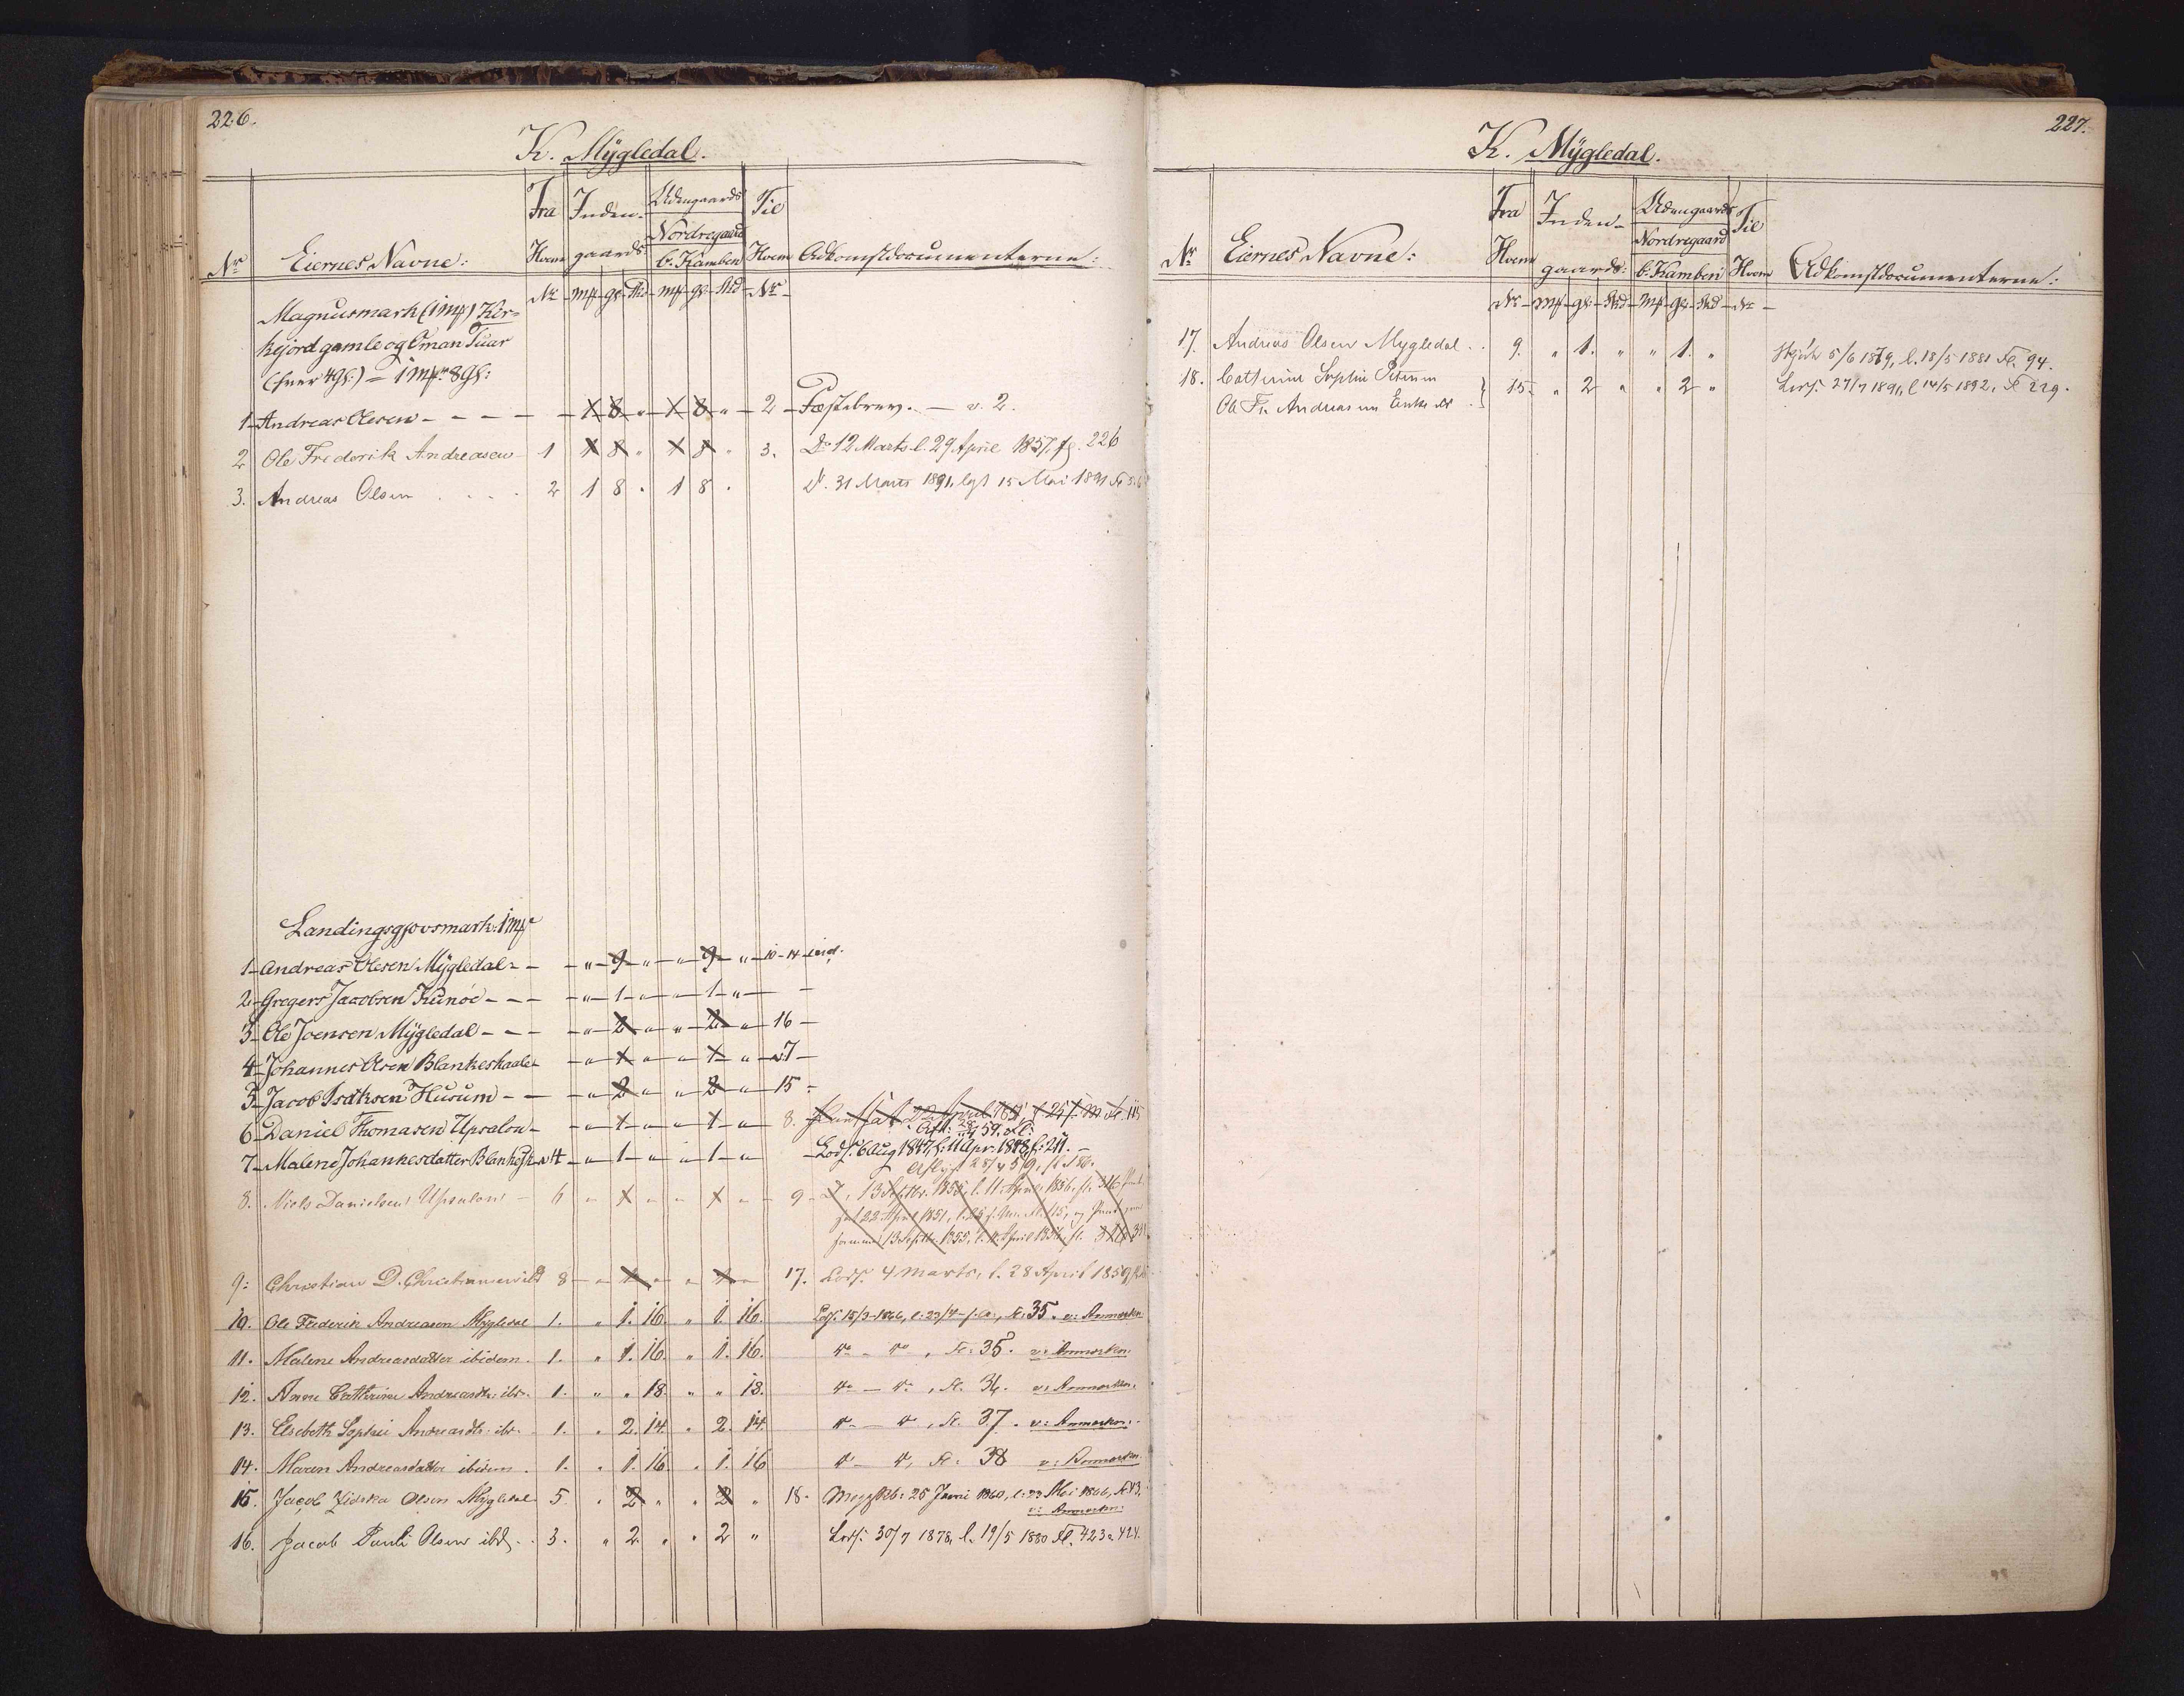 226.
K. Mÿgledal.
Nr Eiernes Navne: Fra Hvem Nr Inden- gaards: Mk gl. Skd Udengaards Nordregaard b. Kamben Mk gl. Skd Til Hvem Nr Adkomstdocumenterne:
Magnusmark (1 mk) Kir-
kejord gamle og Oman Tuar
(hver 4 gl:) = 1 mk 8 gl:
1 Andreas Olesen - - - - 1 8 „ 1 8 „ 2 Fæstebrev. — v. 2.
2 Ole Frederik Andreasen 1 1 8 „ 1 8 „ 3. Do 12 Marts l. 29 April 1857 fo. 226
3. Andreas Olsen . . . . 2 1 8 „ 1 8 „ D. 31 Marts 1891, lgt 15 Mai 1891 Fo
Landingsgjovsmark: 1 mk
1 Andreas Olesen Mÿgledal - - „ 9 „ „ 9 „ 10-14 incl.
2 Gregers Jacobsen Kunöe - - - „ 1 „ „ 1 „ —
3 Ole Joensen Mÿgledal - - - „ 2 „ „ 2 „ 16 —
4 Johannes Olsen Blankeskaale „ 1 „ „ 1 „ v7 —
5 Jacob Isaksen Husum - - - „ 2 „ „ 2 „ 15 -
6 Daniel Thomasen Upsalon - - „ 1 „ „ 1 „ 8. 22 April 1851, l. 25 115
7 Malene Johannesdatter Blankesk. v4 „ 1 „ „ 1 „ Lods. 6 Aug 1847, l. 11 Apr. 1848, f. 211. -
8. Niels Danielsen Upsalon - 6 „ 1 „ „ 1 „ 9 - D. 13 Septbr. 1855, l. 11 April 1856, fl. 346
22 April 1851, l. 25 115, og
13 Septbr. 1855, l. 11 April 1856, fl.
9: Christian D. Christiansen ibd 8 „ 1 „ „ 1 „ 17. Lods. 4 Marts, l. 28 April 1859
10. Ole Frederik Andreasen Mygledal 1. „ 1. 16. „ 1. 16. Lods. 15/3-1866, l: 23/4 - s. A., Fo: 35. v: Anmærkn:
11. Malene Andreasdatter ibidem. 1. „ 1. 16. „ 1. 16. do - do, Fo: 35. v: Anmærkn:
12. Anne Cathrine Andreasdtr. ibd. 1. „ „ 18. „ „ 18. do - do, Fo. 36. v: Anmærkn:
13. Elsebeth Sophie Andreasdtr. ibd. 1. „ 2. 14. „ 2. 14. do - do, Fo. 37. v: Anmærkn:
14. Maren Andreasdatter ibidem. 1. „ 1. 16. „ 1. 16 do - do, Fo: 38 v: Anmærkn.
15. Jacob Zidska Olsen Mygledal 5. „ 2 „ „ 2 „ 18. 25 Juni 1860, l: 23 Mai 1866, Fo 43.
v: Anmærkn:
16. Jacob Pauli Olsen ibd. . 3. „ 2. „ „ 2 „ Lods: 30/7 1878, l. 19/5 1880 Fo. 423 a 424.
227.
K. Mÿgledal.
Nr. Eiernes Navne: Fra Hvem Nr Inden- gaards: Mk gl. Skd Udengaards Nordregaard b. Kamben Mk gl. Skd Til Hvem Nr Adkomstdocumenterne:
17. Andreas Olsen Mygledal . . 9. „ 1. „ „ 1. „ Skjöde 5/6 1879, l. 18/5 1881 Fo. 94.
18. Cathrine Sophie Petersen
Ole Fr. Andreasens Enke } 15. „ 2 „ „ 2 „ Lods. 27/7 1891, l 14/5 1892, Fo 229.